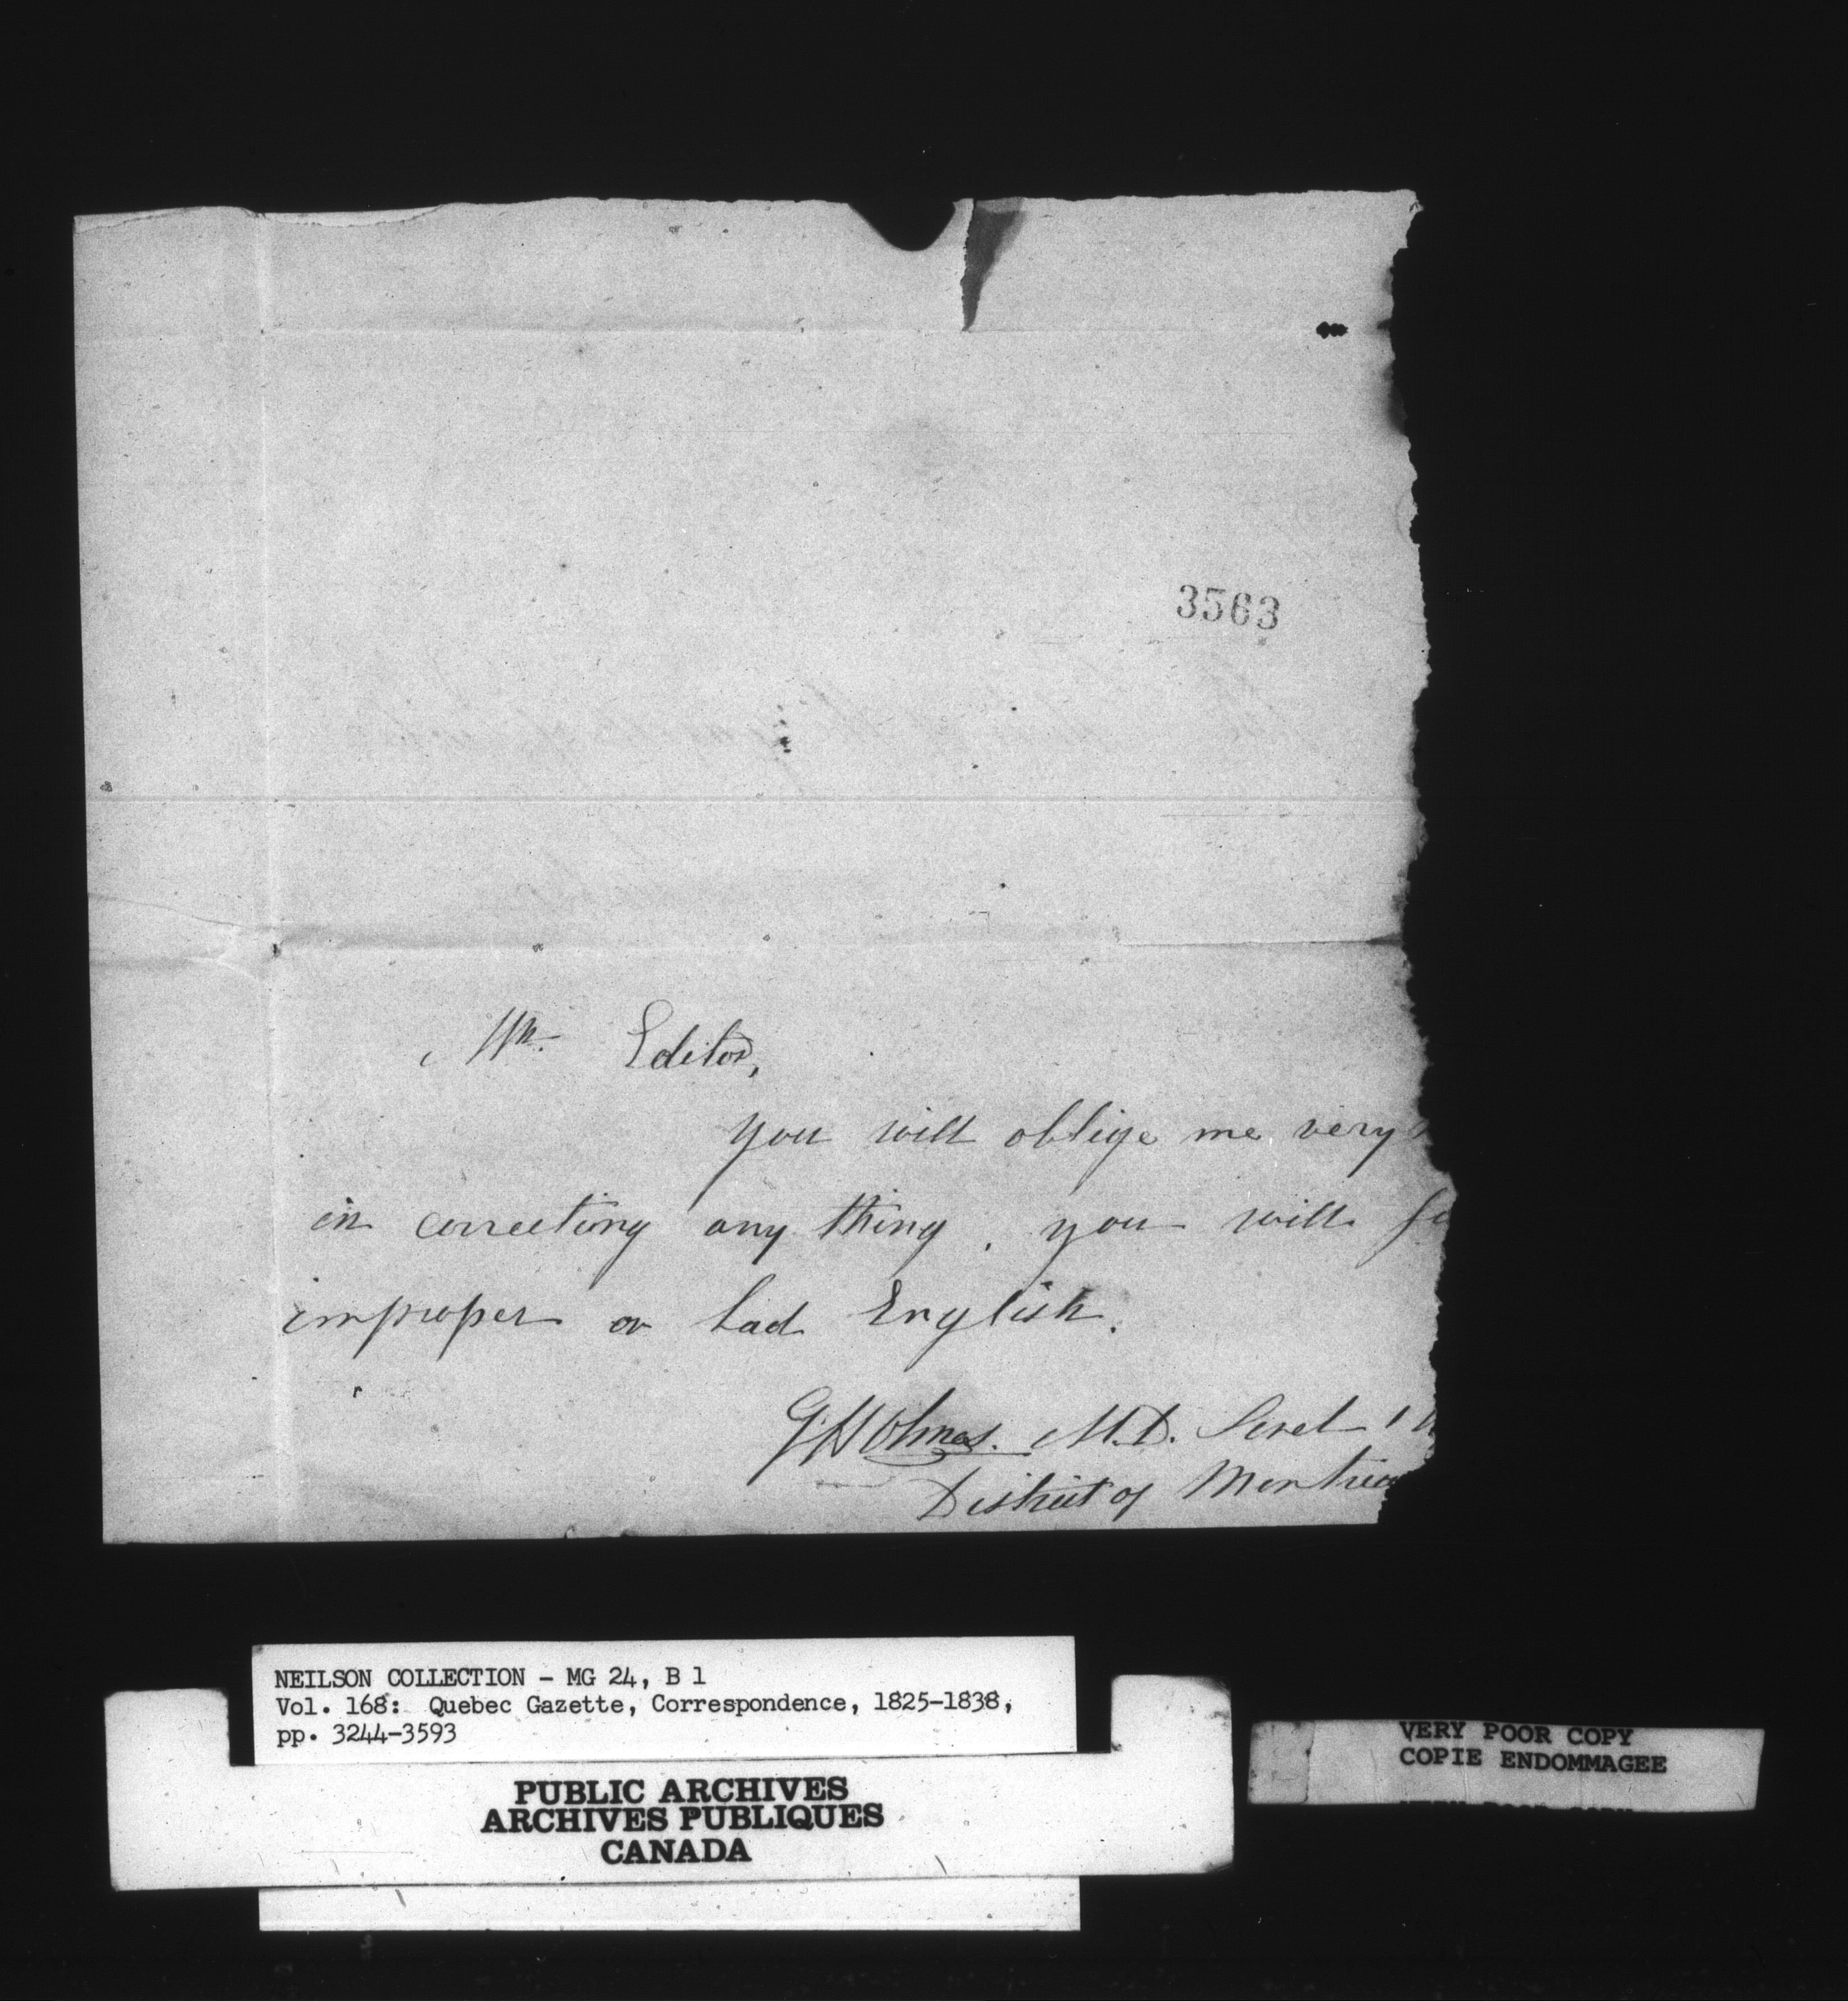 3563
Mr. Editor,
you will oblige me very
in correcting any thing, you will
improper or bad English.
G Holmes. M.D.
District of Montrea
NEILSON COLLECTION - MG 24, B 1
Vol. 168: Quebec Gazette, Correspondence, 1825-1838,
pp. 3244-3593
PUBLIC ARCHIVES
ARCHIVES PUBLIQUES
CANADA
VERY POOR COPY
COPIE ENDOMMAGEE